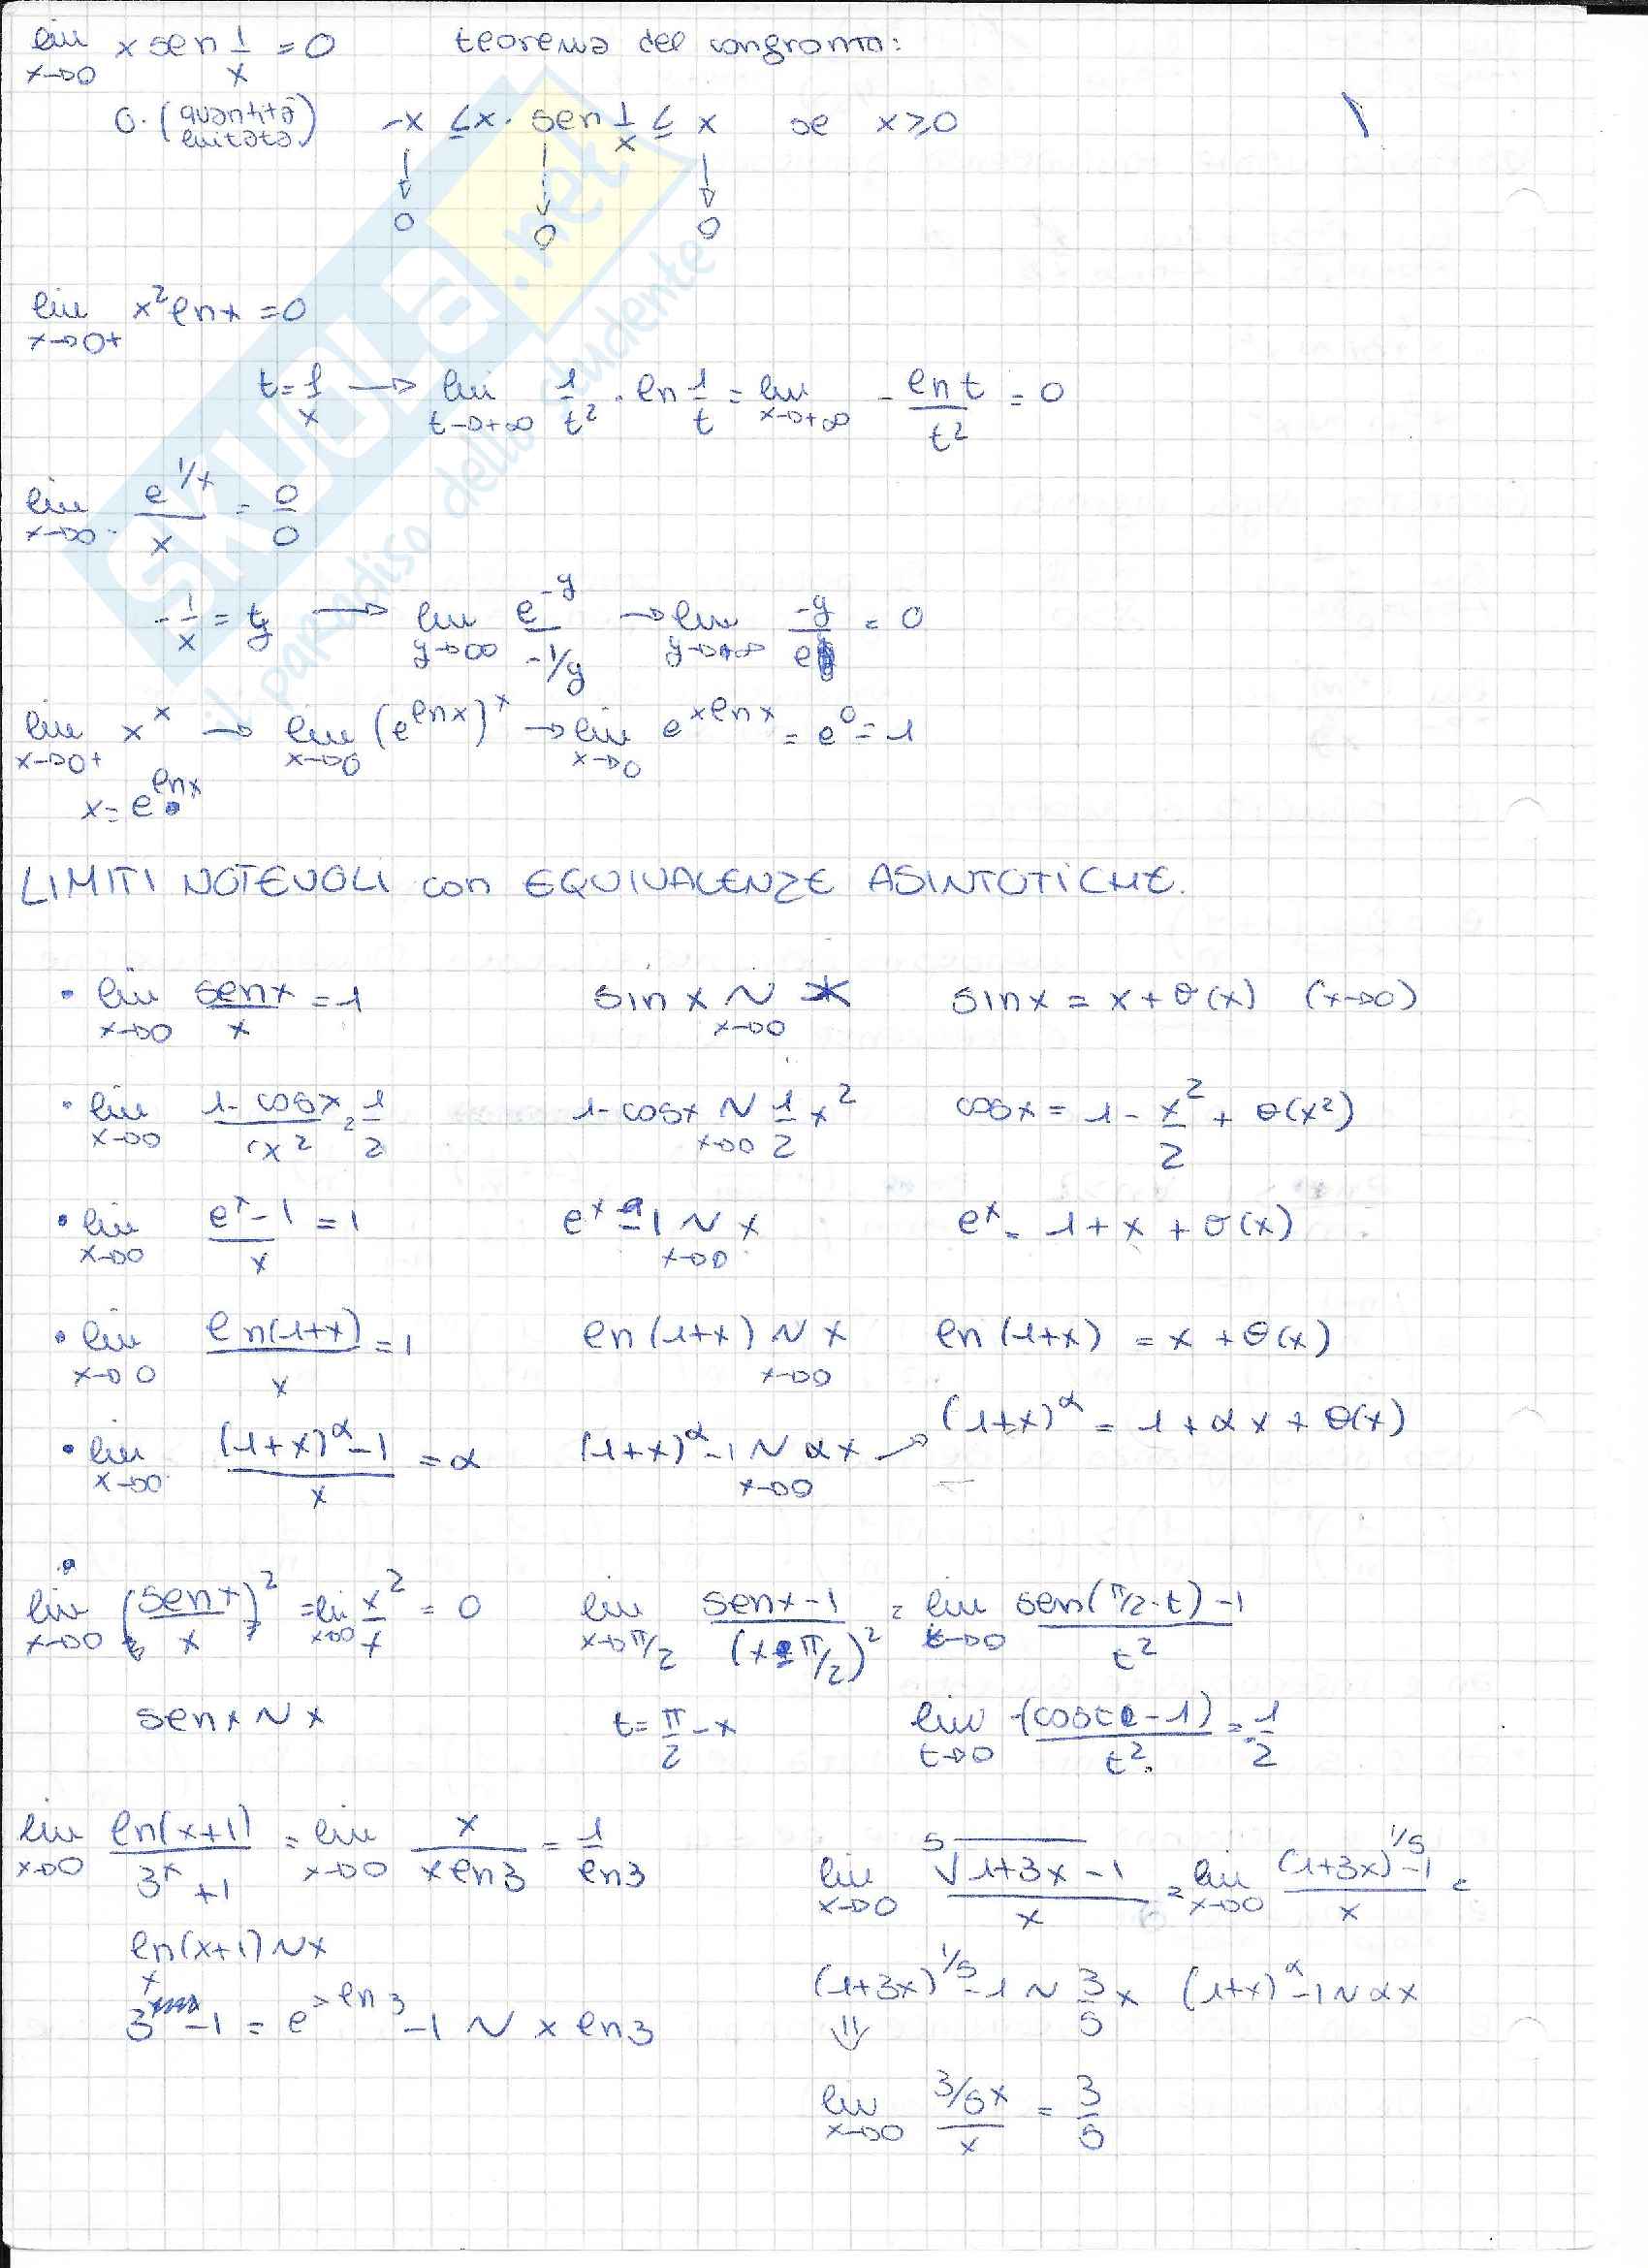 lim x→0 x sen 1/x = 0 teorema del confronto:
0·(quantità limitata) -x ≤ x· sen 1/x ≤ x se x ≥ 0
↓ ↓ ↓
0 0 0
lim x→0+ x² ln x = 0
t = 1/x → lim t→+∞ 1/t² · ln 1/t = lim x→+∞ - ln t/t² = 0
lim x→0- e^(1/x)/x = 0/0
-1/x = y → lim y→∞ e^(-y)/(-1/y) → lim y→+∞ -y/e^y = 0
lim x→0+ x^x → lim x→0 (e^(ln x))^x → lim x→0 e^(x ln x) = e^0 = 1
x = e^(ln x)
LIMITI NOTEVOLI con EQUIVALENZE ASINTOTICHE.
• lim x→0 sen x/x = 1 sin x ~ x x→0 sin x = x + o(x) (x→0)
• lim x→0 (1 - cos x)/x² = 1/2 1 - cos x ~ 1/2 x² x→0 cos x = 1 - x²/2 + o(x²)
• lim x→0 (e^x - 1)/x = 1 e^x - 1 ~ x x→0 e^x = 1 + x + o(x)
• lim x→0 ln(1+x)/x = 1 ln(1+x) ~ x x→0 ln(1+x) = x + o(x)
• lim x→0 ((1+x)^α - 1)/x = α (1+x)^α - 1 ~ αx x→0 → (1+x)^α = 1 + αx + o(x)
lim x→0 (sen x)²/x = lim x→0 x²/x = 0 lim x→π/2 (sen x - 1)/(x - π/2)² = lim t→0 (sen(π/2 - t) - 1)/t²
sen x ~ x t = π/2 - x lim t→0 -(cos t - 1)/t² = 1/2
lim x→0 ln(x+1)/(3^x + 1) = lim x→0 x/(x ln 3) = 1/ln 3 lim x→0 (⁵√(1+3x) - 1)/x = lim x→0 ((1+3x)^(1/5) - 1)/x =
ln(x+1) ~ x
3^x - 1 = e^(x ln 3) - 1 ~ x ln 3 (1+3x)^(1/5) - 1 ~ 3/5 x (1+x)^α - 1 ~ αx
⇓
lim x→0 (3/5 x)/x = 3/5
SKUOLA.net
il paradiso dello studente